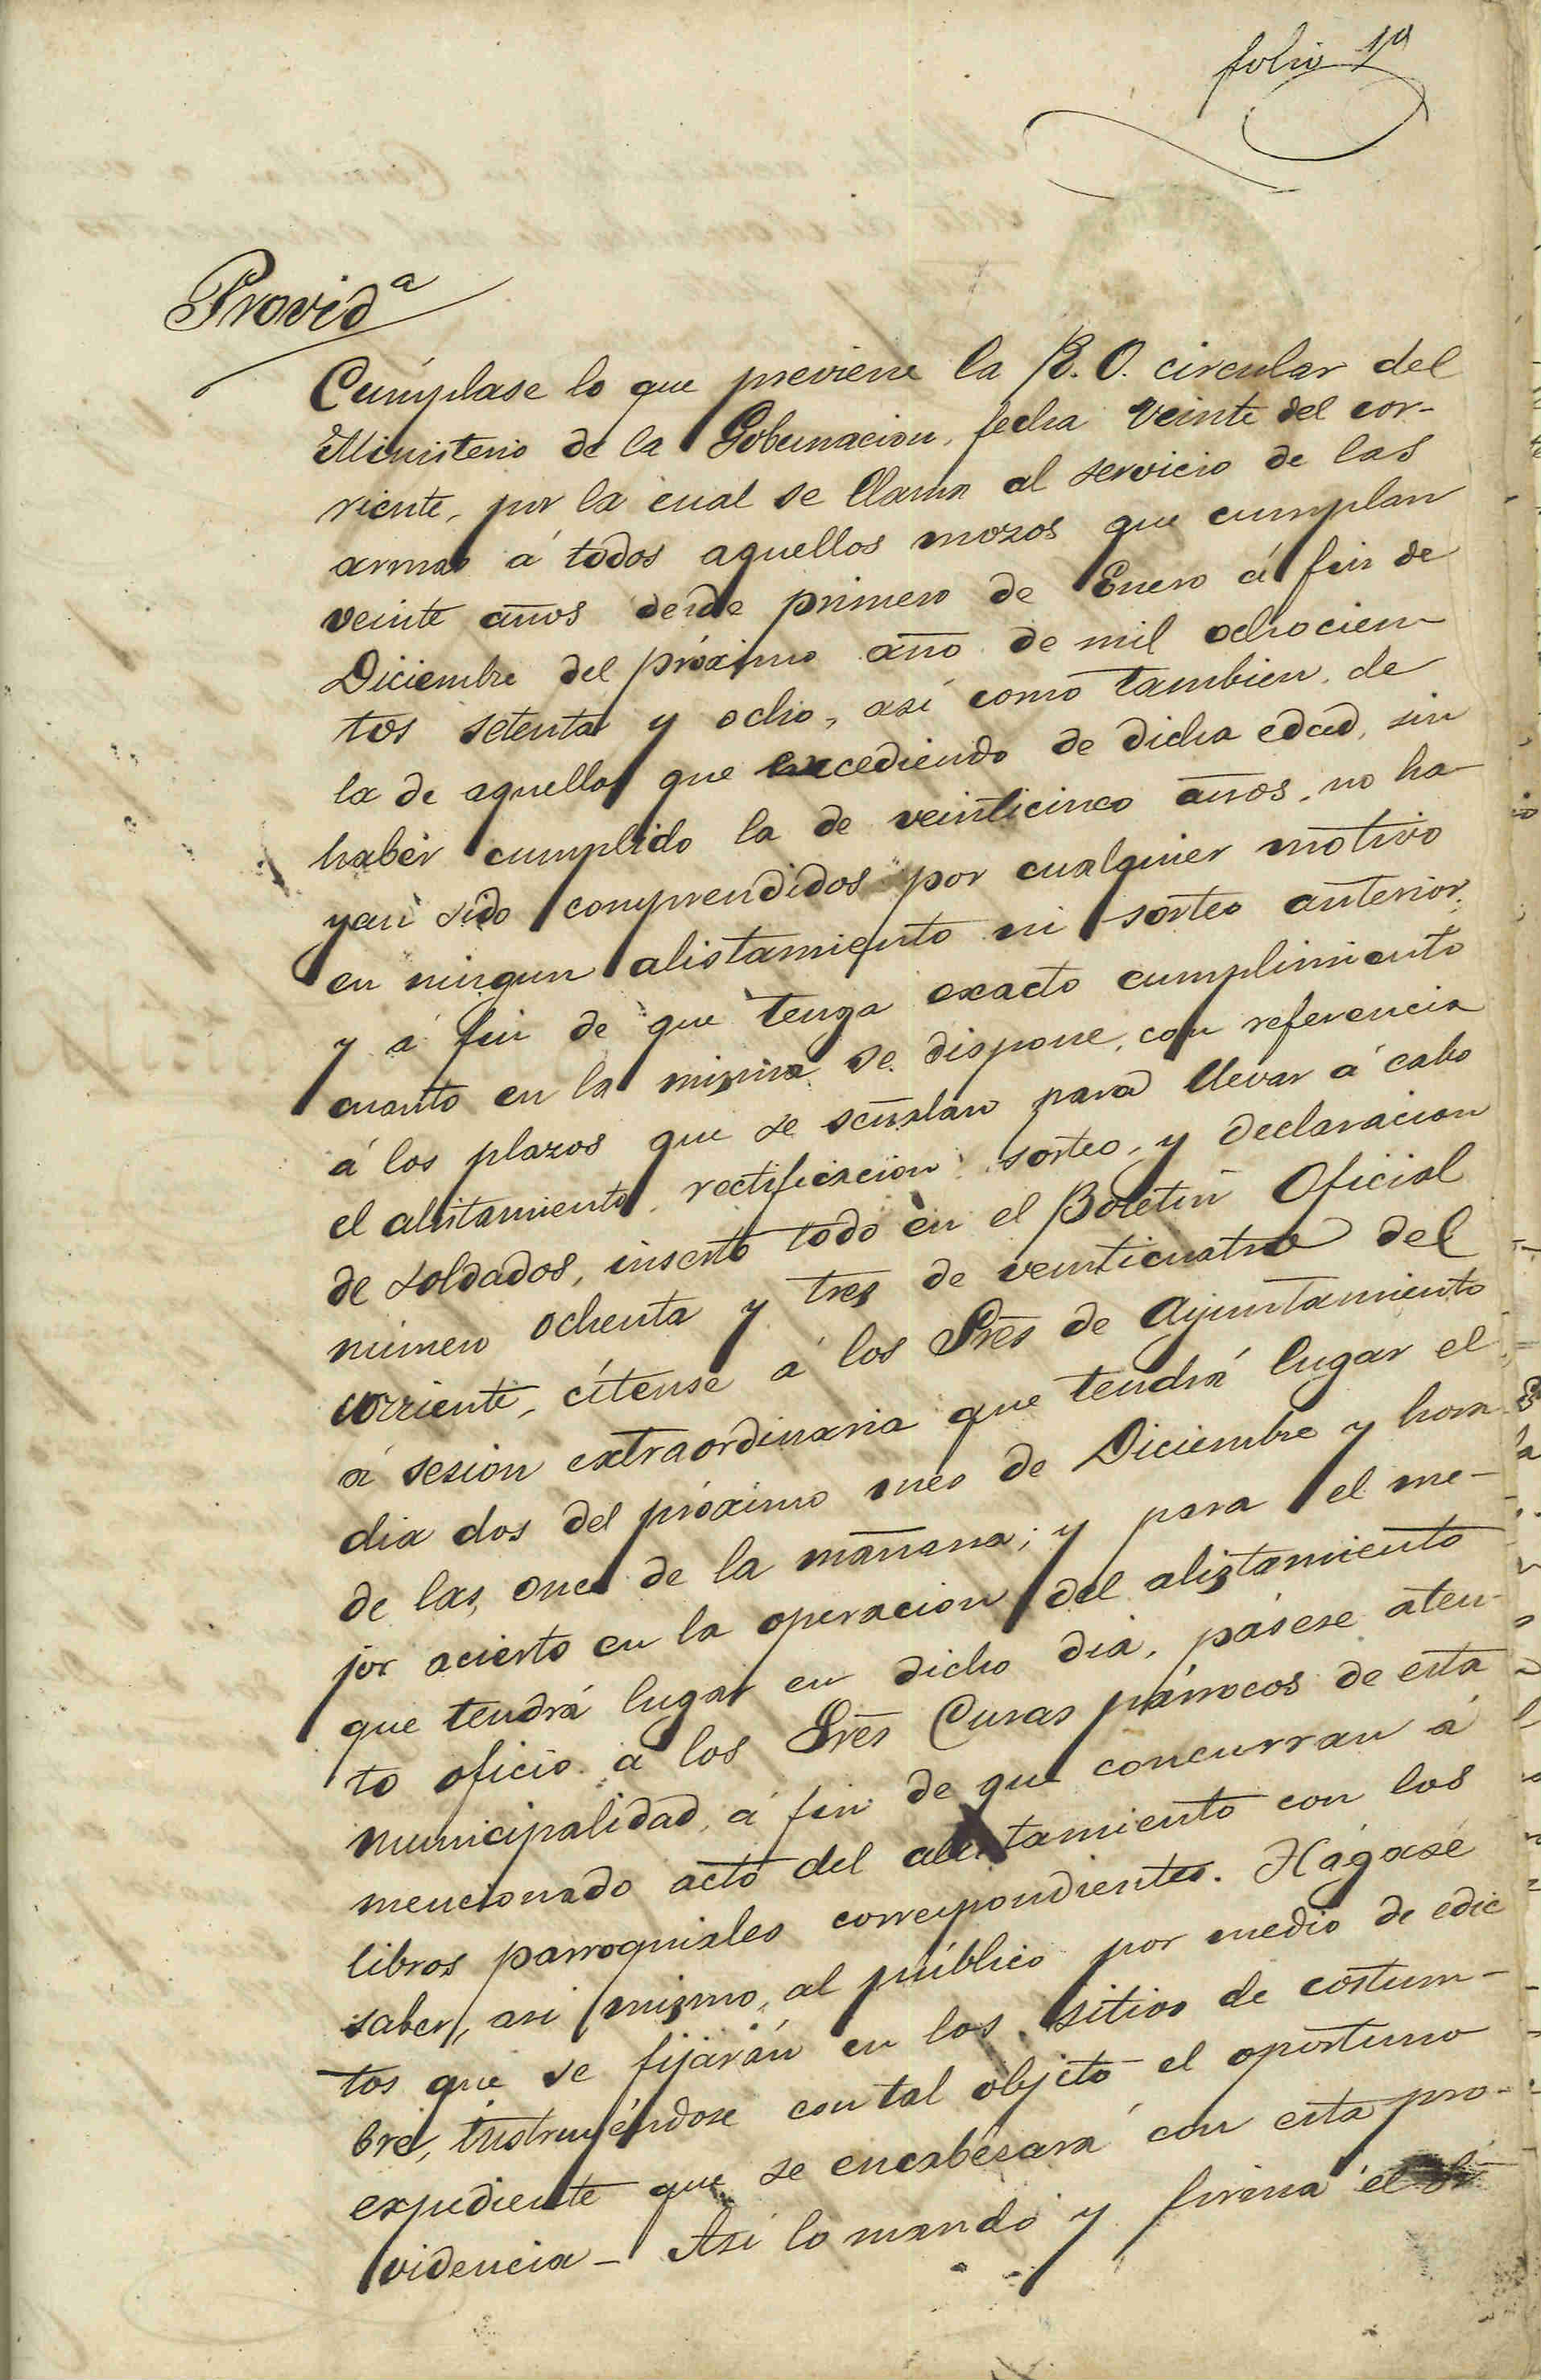 folio 1º
Provid.ª
Cúmplase lo que previene la R. O. circular del
Ministerio de la Gobernacion, fecha veinte del cor-
riente, por la cual se llama al servicio de las
armas á todos aquellos mozos que cumplan
veinte años desde primero de Enero á fin de
Diciembre del próximo año de mil ochocien-
tos setenta y ocho, asi como tambien de
la de aquellos que excediendo de dicha edad, sin
haber cumplido la de veinticinco años, no ha-
yan sido comprendidos por cualquier motivo
en ningun alistamiento ni sorteo anterior;
y á fin de que tenga exacto cumplimiento
cuanto en la misma se dispone, con referencia
á los plazos que se señalan para llevar á cabo
el alistamiento, rectificacion, sorteo, y declaracion
de soldados, inserto todo en el Boletin Oficial
número ochenta y tres de veinticuatro del
corriente, cítense á los Sres de Ayuntamiento
á sesion extraordinaria que tendrá lugar el
dia dos del próximo mes de Diciembre y hora
de las once de la mañana; y para el me-
jor acierto en la operacion del alistamiento
que tendrá lugar en dicho dia, pásese aten-
to oficio á los Sres Curas párrocos de esta
municipalidad, á fin de que concurran á
mencionado acto del alistamiento con los
libros parroquiales correspondientes. Hágase
saber, asi mismo, al público por medio de edic
tos que se fijarán en los sitios de costum-
bre, instruyéndose con tal objeto el oportuno
expediente que se encabezará con esta pro-
videncia - Asi lo mandó y firma el Sr